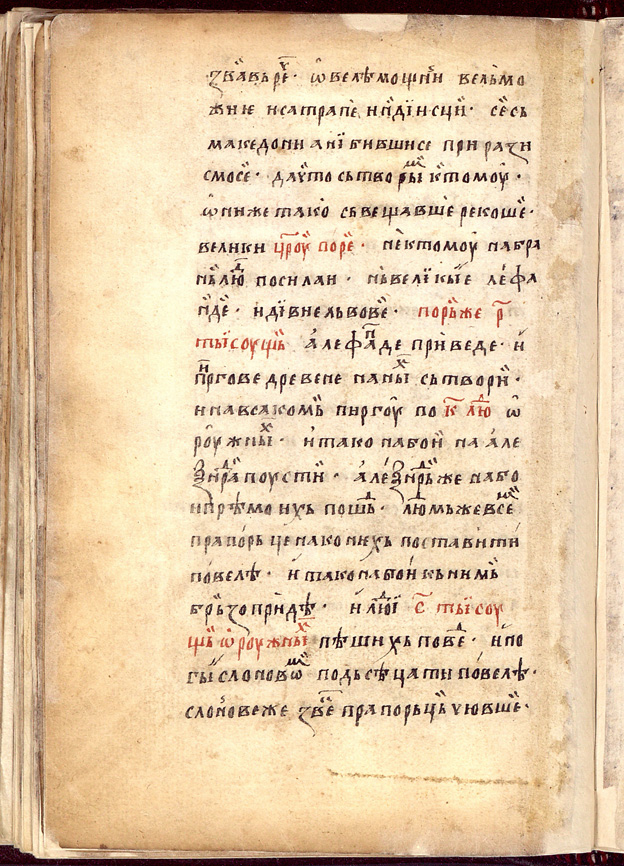 звѣавьре҃ · ѡ велѣмощни вельмо
жнїе и сатрапе индїисци · се сь
македони ани бившисе при рази
смосе · да у́то сьтворы к томоу ·
ѡниже тако свещавше рекоше ·
велики цроу поре · не к томоу на бра
нь люд посилаи · нь великые лефа
нде · и дївие львове · порьже р҃
тыїсоущь алефанде приведе · и
пргове древене на ных сьтвори ·
и на всакомь пиргоу по к҃ люд ѡ
роужных · и тако на бои на але
ѯндра поусти · алеѯндрьже на бо
и прѣмо ихь пошьд · людмьже всем
прапорьце на ко нихь поставити
повелѣ · и тако на бои кь нимь
брьзо приде · и людїи с҃ тыїсоу
щь ѡроужных пѣшихь повед · и но
гы слоновѡм подьсѣцати повелѣ ·
слоновеже звѣе прапорьць чювше ·